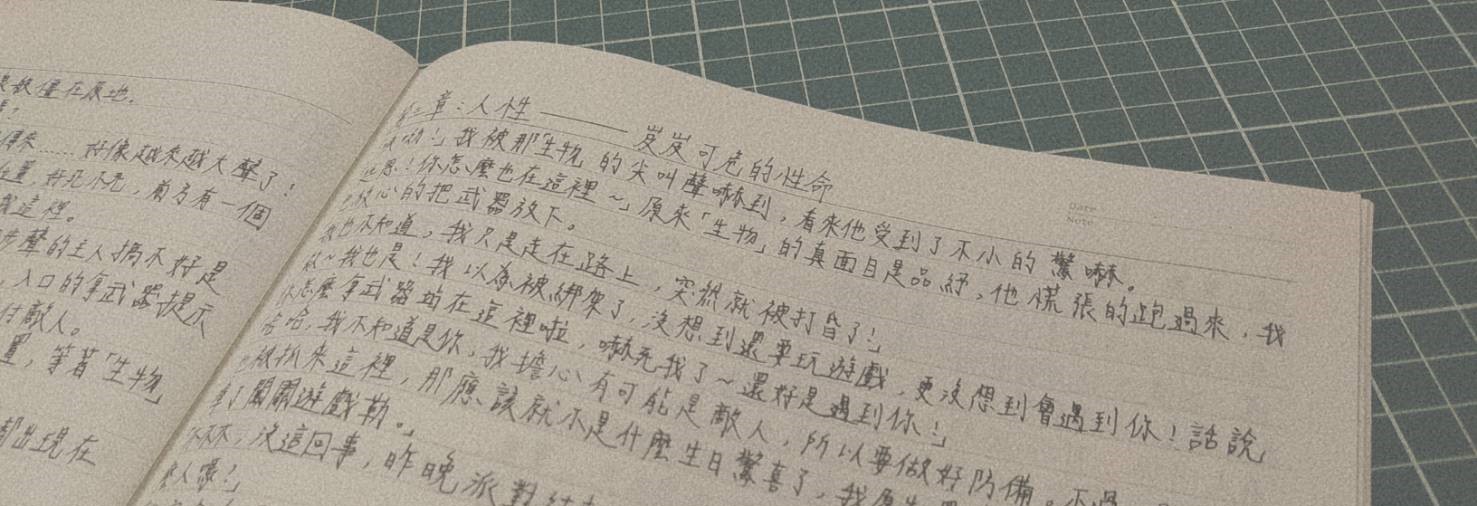 是敵僅在原地。
傳來……好像越來越大聲了!
位置,好死不死,前方有一個
我這裡。
步聲的主人搞不好是
,入口的拿武器提示
付敵人。
置,等著「生物
都出現在
第二章:人性——岌岌可危的性命
!」我被那「生物的尖叫聲嚇到,看來他受到了不小的驚嚇。
恩!你怎麼也在這裡~」原來「生物」的真面目是品紓,他慌張的跑過來,我
放心的把武器放下。
我也不知道,我只是走在路上,突然就被打昏了!」
~我也是!我以為被綁架了,沒想到還要玩遊戲,更沒想到會遇到你!話說
你怎麼拿武器站在這裡啦 嚇死我了~還好是遇到你!」
哈哈,我不知道是你,我擔心有可能是敵人,所以要做好防備。不過,
被抓來這裡,那應該就不是什麼生日驚喜了,我原先
闖關遊戲勒。」
不不,沒這回事,昨晚派對結
Date
Note